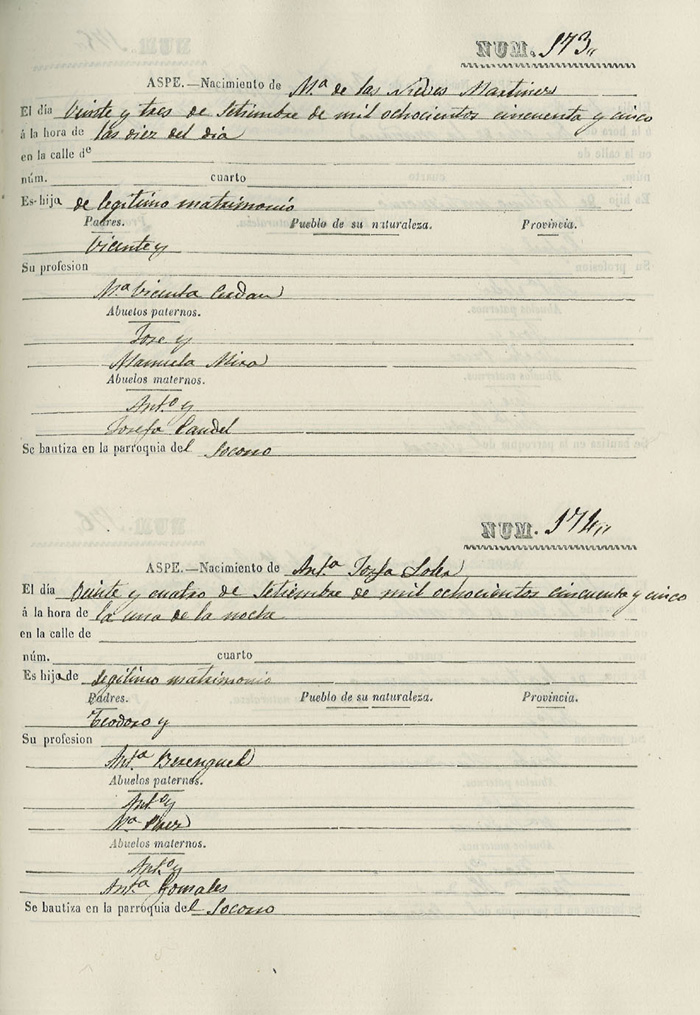 NUM. 173.
ASPE.—Nacimiento de Mª de las Nieves Martines
El dia Veinte y tres de Setiembre de mil ochocientos cincuenta y cinco
á la hora de las diez del dia
en la calle de
núm. cuarto
Es hija de legitimo matrimonio
Padres. Pueblo de su naturaleza. Provincia.
Vicente y
Su profesion
Mª Vicenta Cerdan
Abuelos paternos.
Jose y
Manuela Mira
Abuelos maternos.
Antº y
Josefa
Se bautiza en la parroquia del Socorro
NUM. 174.
ASPE.—Nacimiento de Antª Josefa
El dia Veinte y cuatro de Setiembre de mil ochocientos cincuenta y cinco
á la hora de la una de la noche
en la calle de
núm. cuarto
Es hija de legitimo matrimonio
Padres. Pueblo de su naturaleza. Provincia.
Teodoro y
Su profesion
Antª Berenguel
Abuelos paternos.
Antº y
Mª
Abuelos maternos.
Antº y
Antª Gonsales
Se bautiza en la parroquia del Socorro